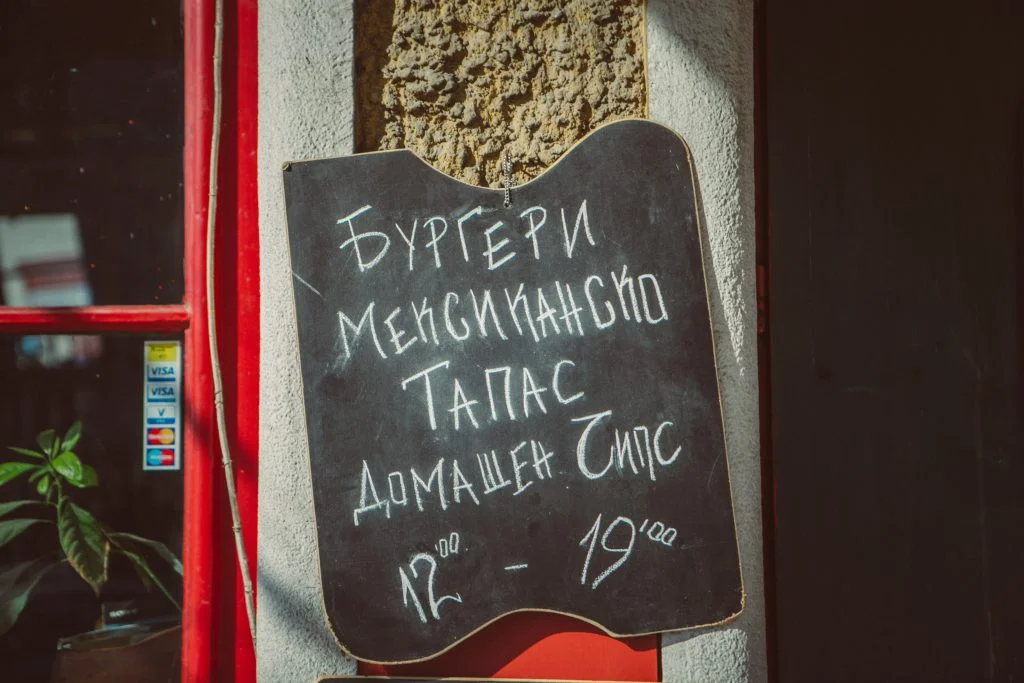 БУРГЕРИ
МЕКСИКАНСКО
ТАПАС
ДОМАШЕН ЧИПС
12'00 – 19'00
VISA
VISA
V